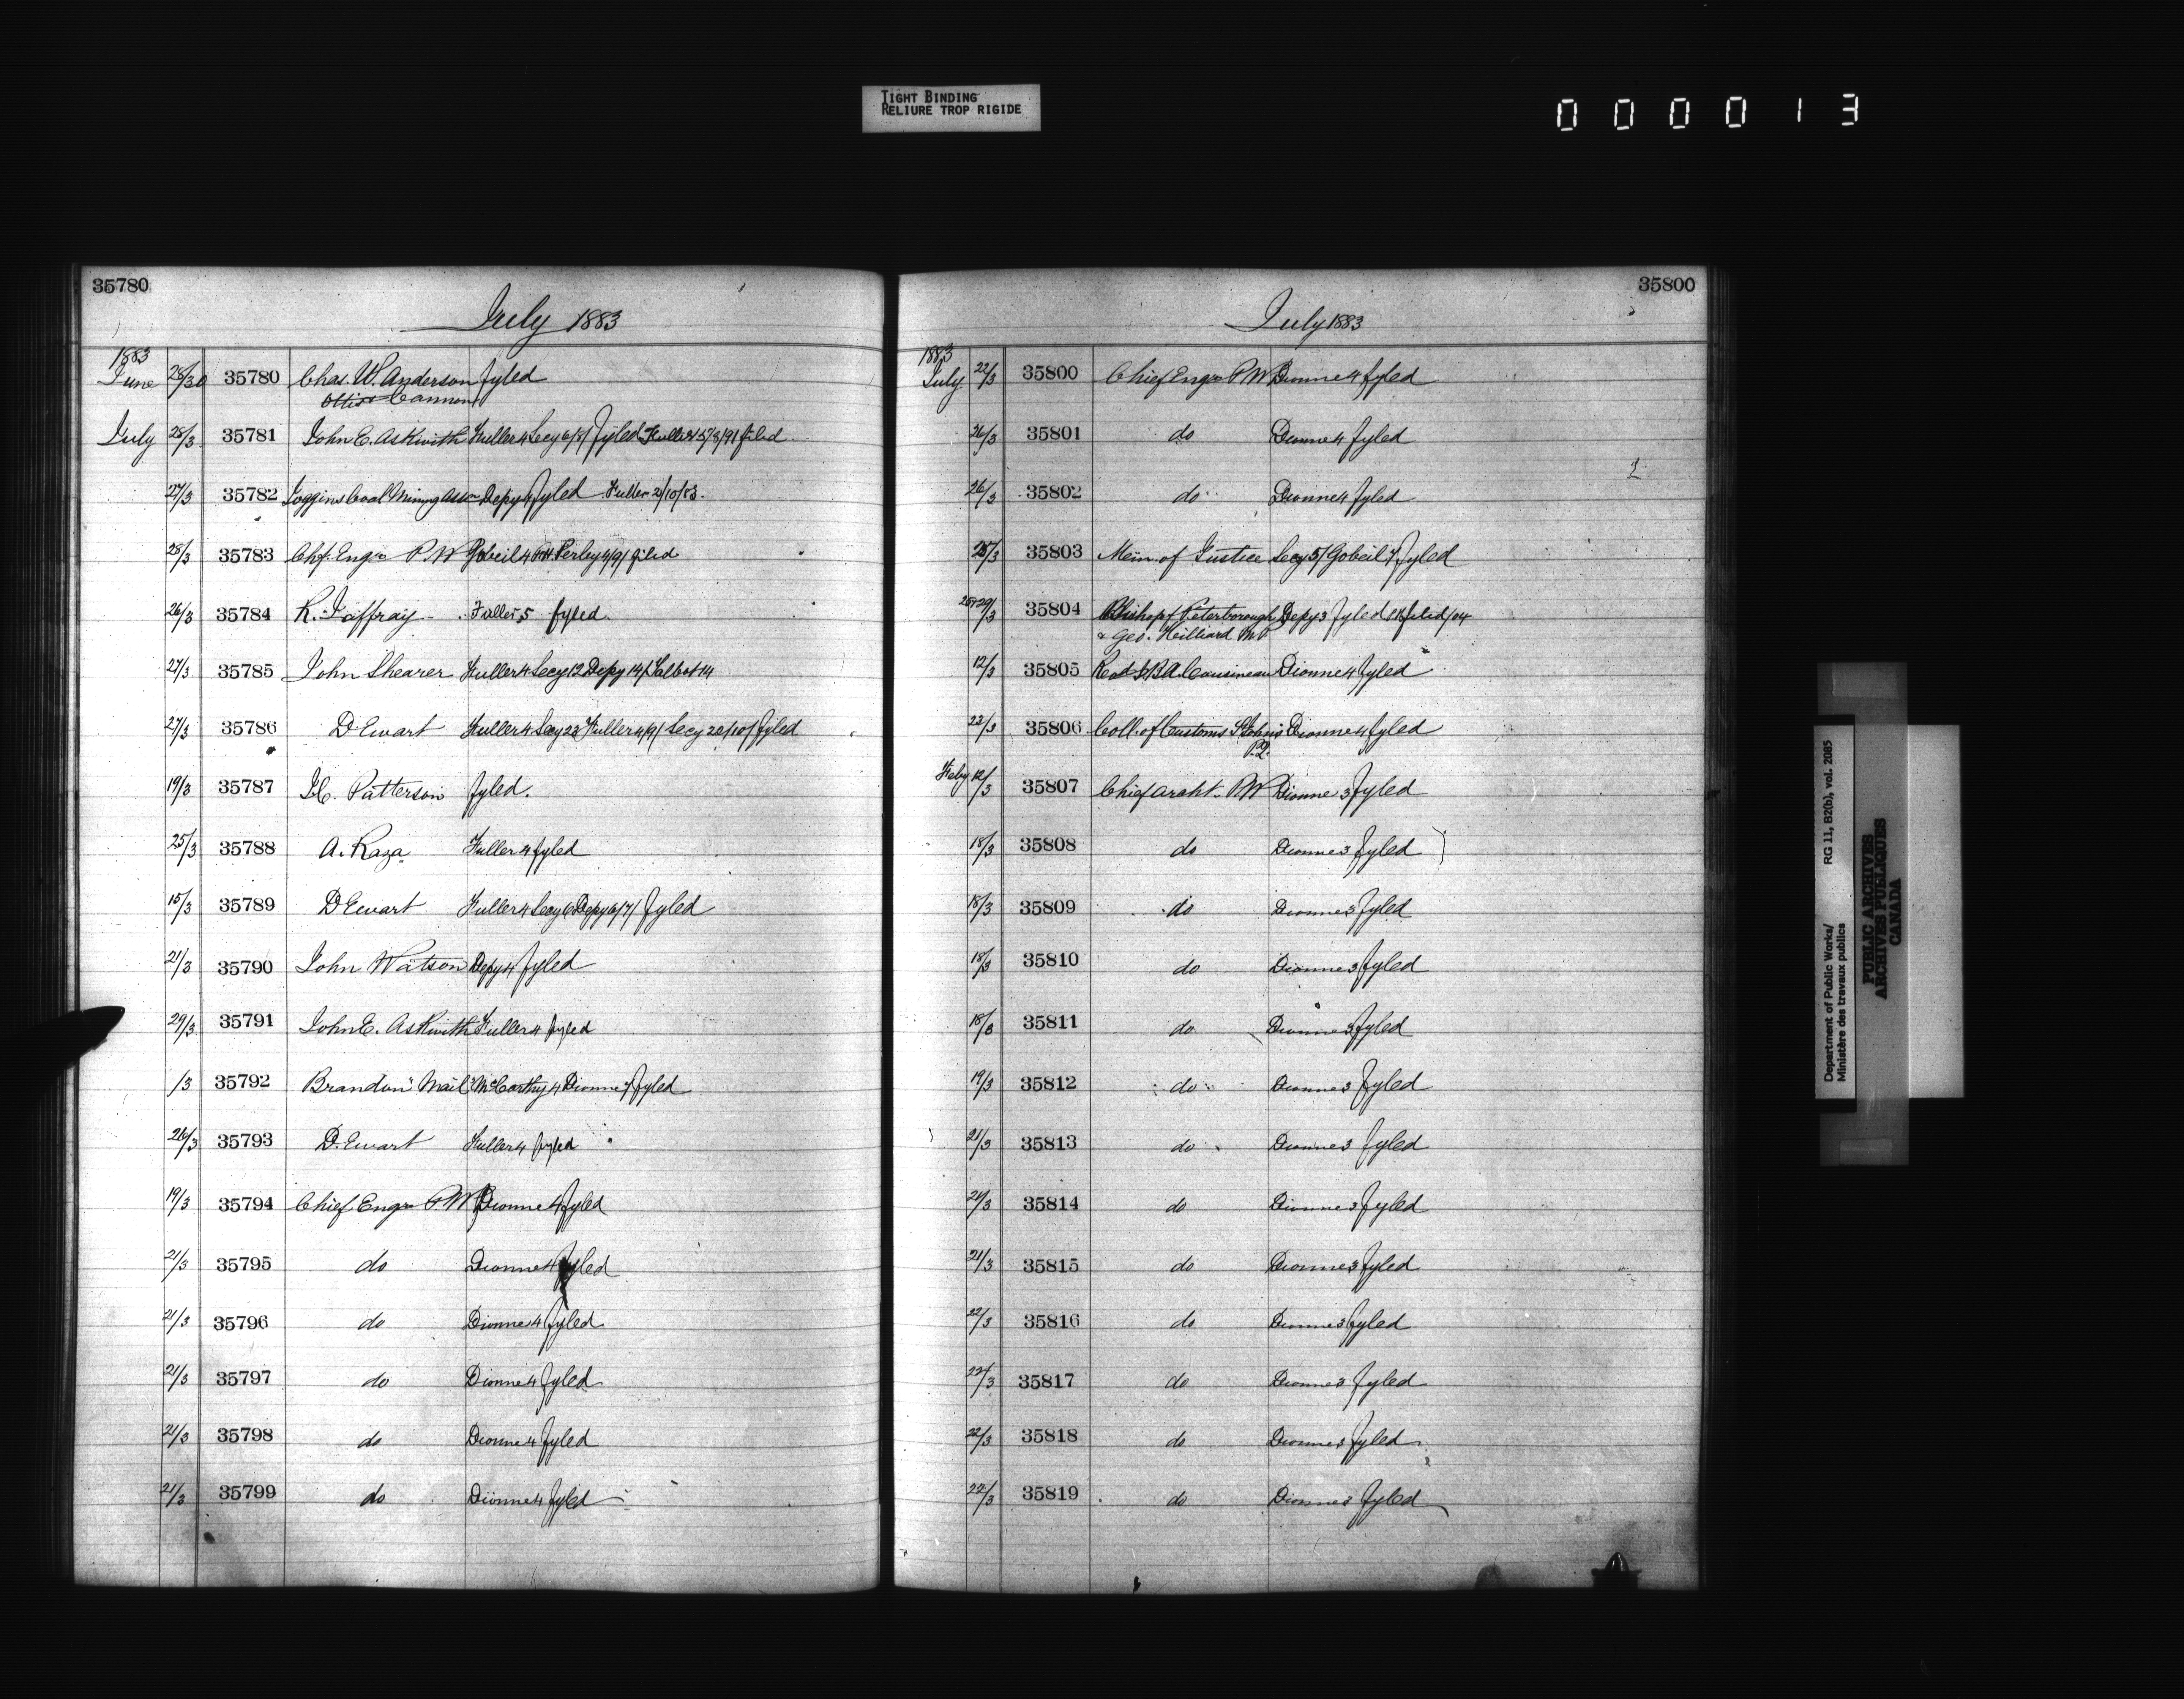 TIGHT BINDING
RELIURE TROP RIGIDE
000013
35780
July 1883
1883
June 28/30 35780 Chas. W. Anderson fyled
Cannon
July 28/3 35781 John E. Askwith Fuller 4 Secy 6/7/ fyled Fuller 15/8/91 filed
27/3 35782 Joggins Coal Mining Assn Depy 4 fyled Fuller 2/10/83.
28/3 35783 Chf. Engr P.W. Gobeil 4 Perley 4/9/ filed
26/3 35784 R. Jaffray Fuller 5 fyled.
27/3 35785 John Shearer Fuller 4 Secy 12 Depy 14/ Talbot 14
27/3 35786 D Ewart Fuller 4 Secy 23 Fuller 4/9/ Secy 22/10/ fyled
19/3 35787 Patterson fyled.
25/3 35788 A. Raza Fuller 4 fyled
15/3 35789 D Ewart Fuller 4 Secy 6 Depy 6/7/ fyled
21/3 35790 John Watson Depy 4 fyled
29/3 35791 John E. Askwith Fuller 4 fyled
/3 35792 Brandon "Mail" McCarthy 4 Dionne 7 fyled
26/3 35793 D. Ewart Fuller 4 fyled
19/3 35794 Chief Engr P.W. Dionne 4 fyled
21/3 35795 do Dionne 4 fyled
21/3 35796 do Dionne 4 fyled
21/3 35797 do Dionne 4 fyled
21/3 35798 do Dionne 4 fyled
21/3 35799 do Dionne 4 fyled
35800
July 1883
1883
July 22/3 35800 Chief Engr P.W. Dionne 4 fyled
26/3 35801 do Dionne 4 fyled
26/3 35802 do Dionne 4 fyled
25/3 35803 Min. of Justice Secy 5/ Gobeil 7 fyled
25+29/3 35804 Bishop of Peterborough Depy 3 fyled filed/04
& Geo. Hilliard M.P.
12/3 35805 Revd Cousineau Dionne 4 fyled
22/3 35806 Coll. of Customs St Johns Dionne 4 fyled
P.Q.
Feby 12/3 35807 Chief Archt. P.W. Dionne 3 fyled
18/3 35808 do Dionne 3 fyled
18/3 35809 do Dionne 3 fyled
18/3 35810 do Dionne 3 fyled
18/3 35811 do Dionne 3 fyled
19/3 35812 do Dionne 3 fyled
21/3 35813 do Dionne 3 fyled
21/3 35814 do Dionne 3 fyled
21/3 35815 do Dionne 3 fyled
22/3 35816 do Dionne 3 fyled
22/3 35817 do Dionne 3 fyled
22/3 35818 do Dionne 3 fyled
22/3 35819 do Dionne 3 fyled
Department of Public Works/ RG 11, B2(b), vol. 2085
Ministère des travaux publics
PUBLIC ARCHIVES
ARCHIVES PUBLIQUES
CANADA